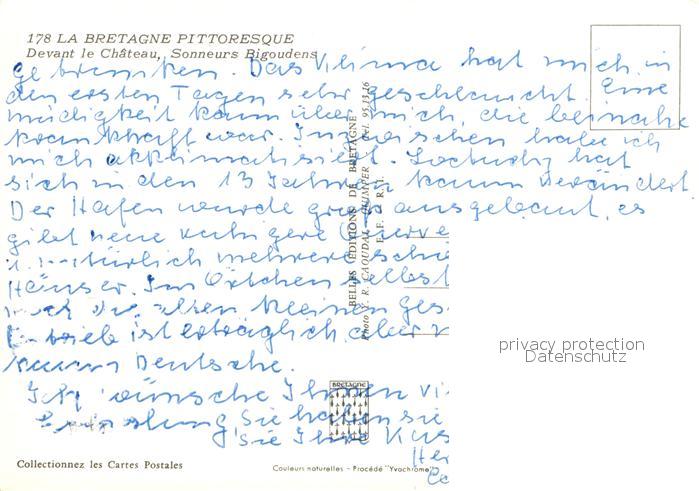 178 LA BRETAGNE PITTORESQUE
Devant le Château, Sonneurs Bigoudens
getrunken. Das Klima hat mich in
den ersten Tagen sehr geschlaucht. Eine
müdigkeit kam über mich, die beinahe
krankhaft war. Inzwischen habe ich
mich akklimatisiert. Loctudy hat
sich in den 13 Jahren kaum verändert.
Der Hafen wurde groß ausgebaut, es
gibt neue
natürlich mehrere
Häuser. Im Örtchen selbst
noch die alten kleinen
ist erträglich, aber
kaum Deutsche.
Ich wünsche Ihnen
Sie haben sie
Sie Ihre
BELLES ÉDITIONS DE BRETAGNE
BRETAGNE
privacy protection
Datenschutz
Collectionnez les Cartes Postales
Couleurs naturelles - Procédé "Yvochrome"